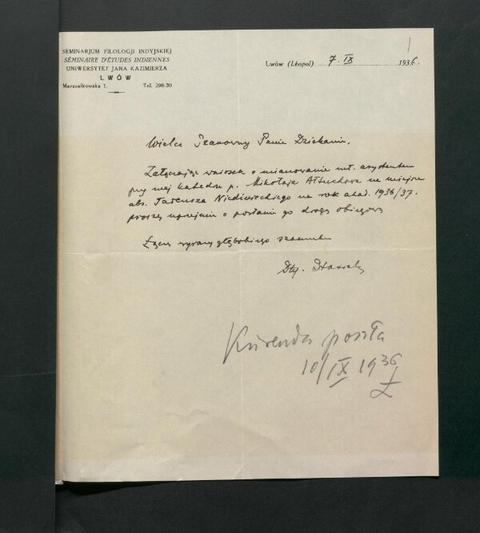 SEMINARJUM FILOLOGJI INDYJSKIEJ
SÉMINAIRE D'ÉTUDES INDIENNES
UNIWERSYTET JANA KAZIMIERZA
LWÓW
Marszałkowska 1. Tel. 298-20
Lwów (Léopol) 7. IX 1936.
1
Wielce Szanowny Panie Dziekanie,
Załączając wniosek o mianowanie mł. asystentem
przy mej katedrze p. Mikołaja na miejsce
abs. Tadeusza na rok akad. 1936/37.
proszę uprzejmie o posłanie go drogą obiegową
Łączę wyrazy głębokiego szacunku
Kurenda poszła
10/IX 1936